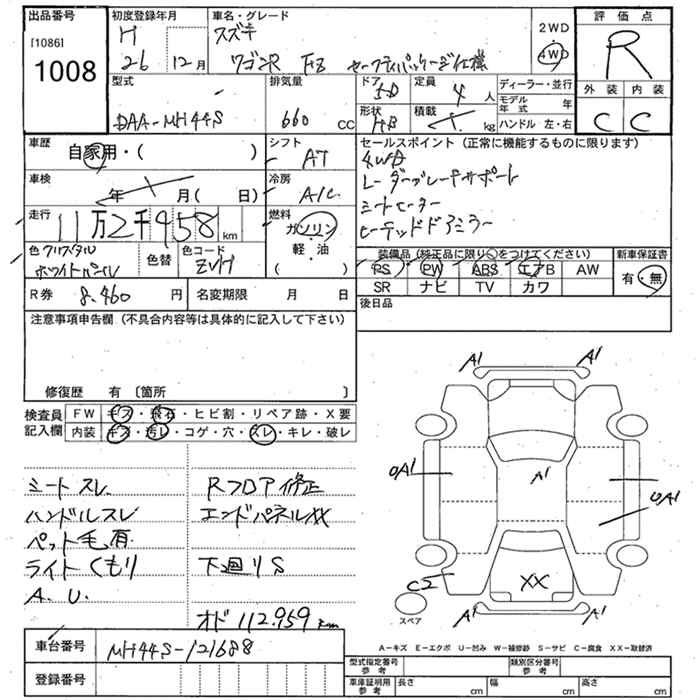 出品番号 初度登録年月 車名・グレード 評価点
[1086] H スズキ 2WD
1008 26 12月 ワゴンR FZ セーフティパッケージ仕様 4WD R
型式 排気量 ドア 定員 ディーラー・並行 外装 内装
DAA-MH44S 660 CC 5D 4 人 モデル年式 年
形状 積載 kg ハンドル 左・右 C C
HB
車歴 自家用・( ) シフト AT セールスポイント (正常に機能するものに限ります)
4WD
車検 年 月( 日) 冷房 A/C レーダーブレーキサポート
シートヒーター
走行 11万2千958 km 燃料 ガソリン ヒーテッドドアミラー
色 クリスタルホワイトパール 色替 色コード ZVH 軽・油 ( )
装備品 (純正品に限り○をつけてください) 新車保証書
PS PW ABS エアB AW 有・無
SR ナビ TV カワ
R券 8,460 円 名変期限 月 日 後日品
注意事項申告欄 (不具合内容等は具体的に記入して下さい)
修復歴 有 〔箇所 〕
検査員記入欄 FW キズ・飛石・ヒビ割・リペア跡・X要
内装 キズ・汚レ・コゲ・穴・スレ・キレ・破レ
シートスレ Rフロア修正
ハンドルスレ エンドパネルXX
ペット毛有
ライトくもり 下廻りS
A.U.
オド 112,959 km
A1 A1
A1
A1
XX
C2
スペア
A1 A1
A-キズ E-エクボ U-凹み W-補修跡 S-サビ C-腐食 XX-取替済
車台番号 MH44S-121688
登録番号
型式指定番号 参考 類別区分番号 参考
車庫証明用 参考 長さ cm 幅 cm 高さ cm